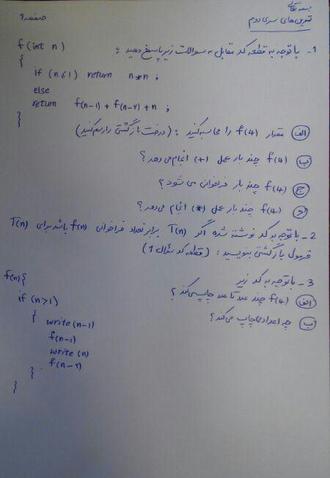 بسمه تعالی
صفحه ۱
تمرین‌های سری دوم
۱- با توجه به قطعه کد مقابل به سوالات زیر پاسخ دهید :
f(int n)
{
if (n≤1) return n*n ;
else
return f(n-1) + f(n-2) + n ;
}
الف) مقدار f(4) را محاسبه کنید : (درخت بازگشتی را رسم کنید)
ب) f(4) چند بار عمل (+) انجام می‌دهد؟
ج) f(4) چند بار فراخوانی می شود؟
د) f(4) چند بار عمل (*) انجام می‌دهد؟
2- با توجه به کد نوشته شده اگر T(n) برابر تعداد فراخوانی f(n) باشد برای T(n)
فرمول بازگشتی بنویسید : (قطعه کد سوال 1)
3- با توجه به کد زیر
الف) f(4) چند عدد چاپ می‌کند؟
ب) چه اعدادی چاپ می‌کند؟
f(n){
if (n>1)
{ write(n-1)
f(n-1)
write(n)
f(n-2)
}
}